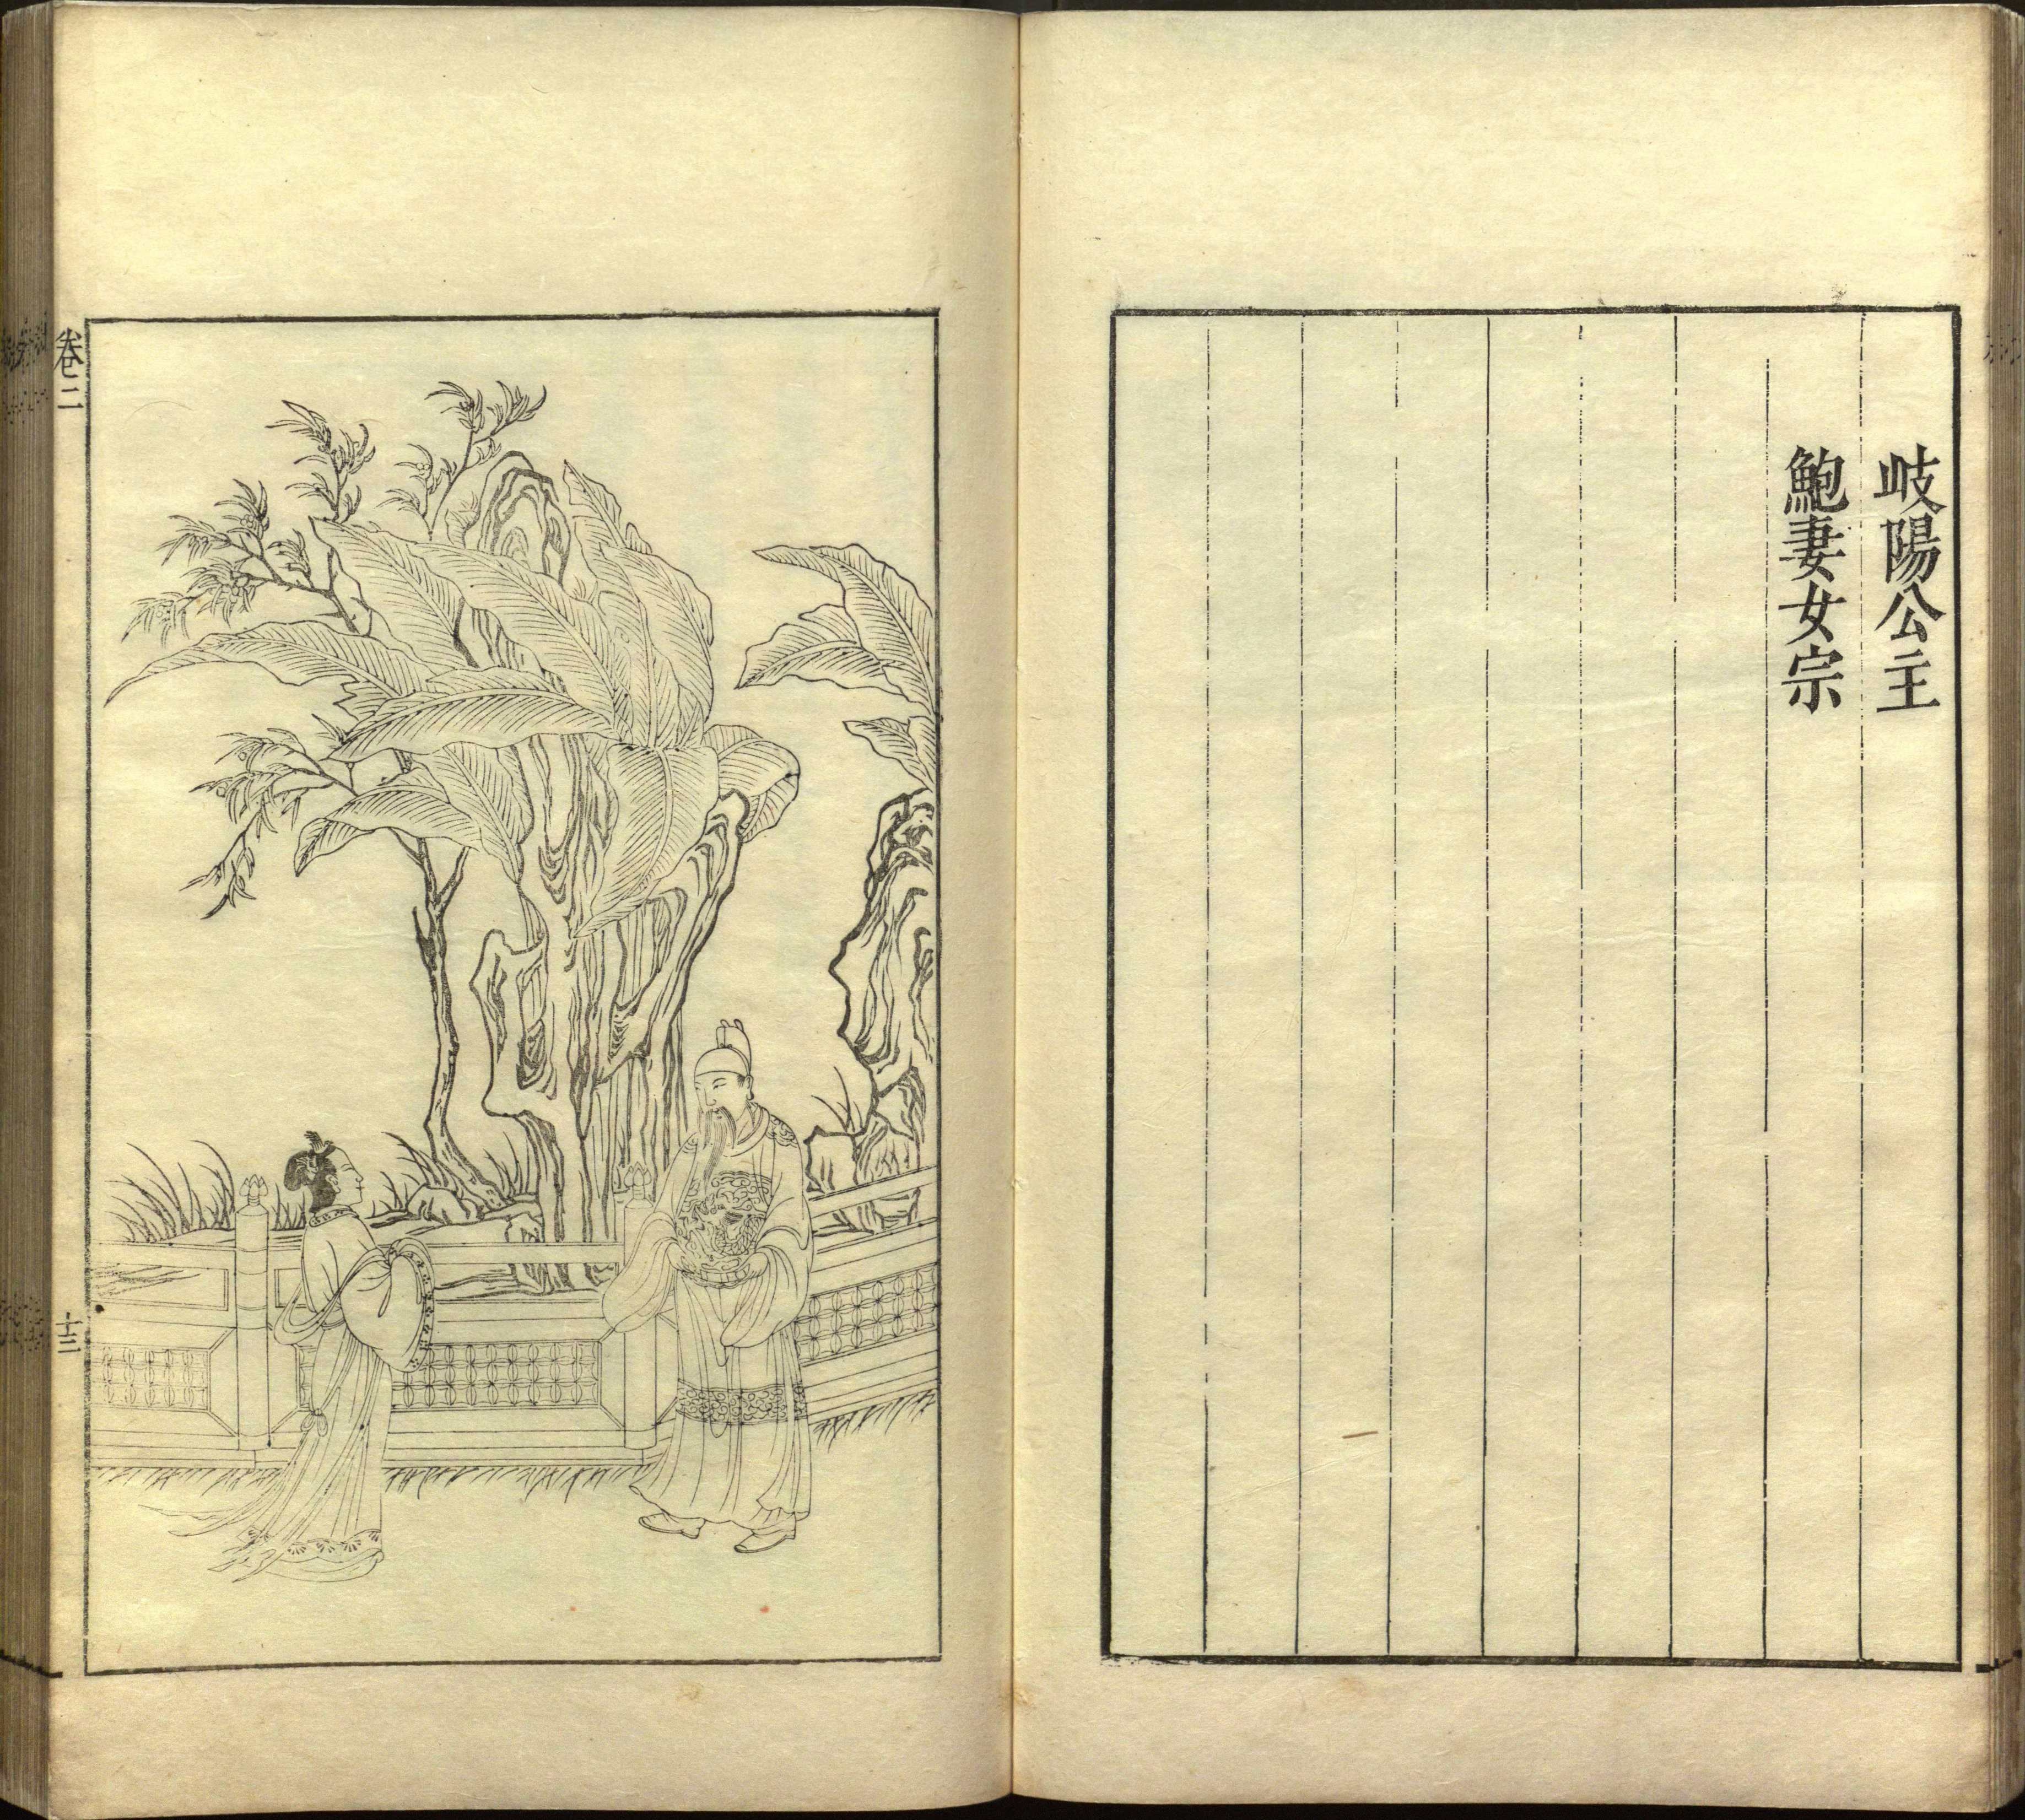 岐陽公主
鮑妻女宗
卷二
十三